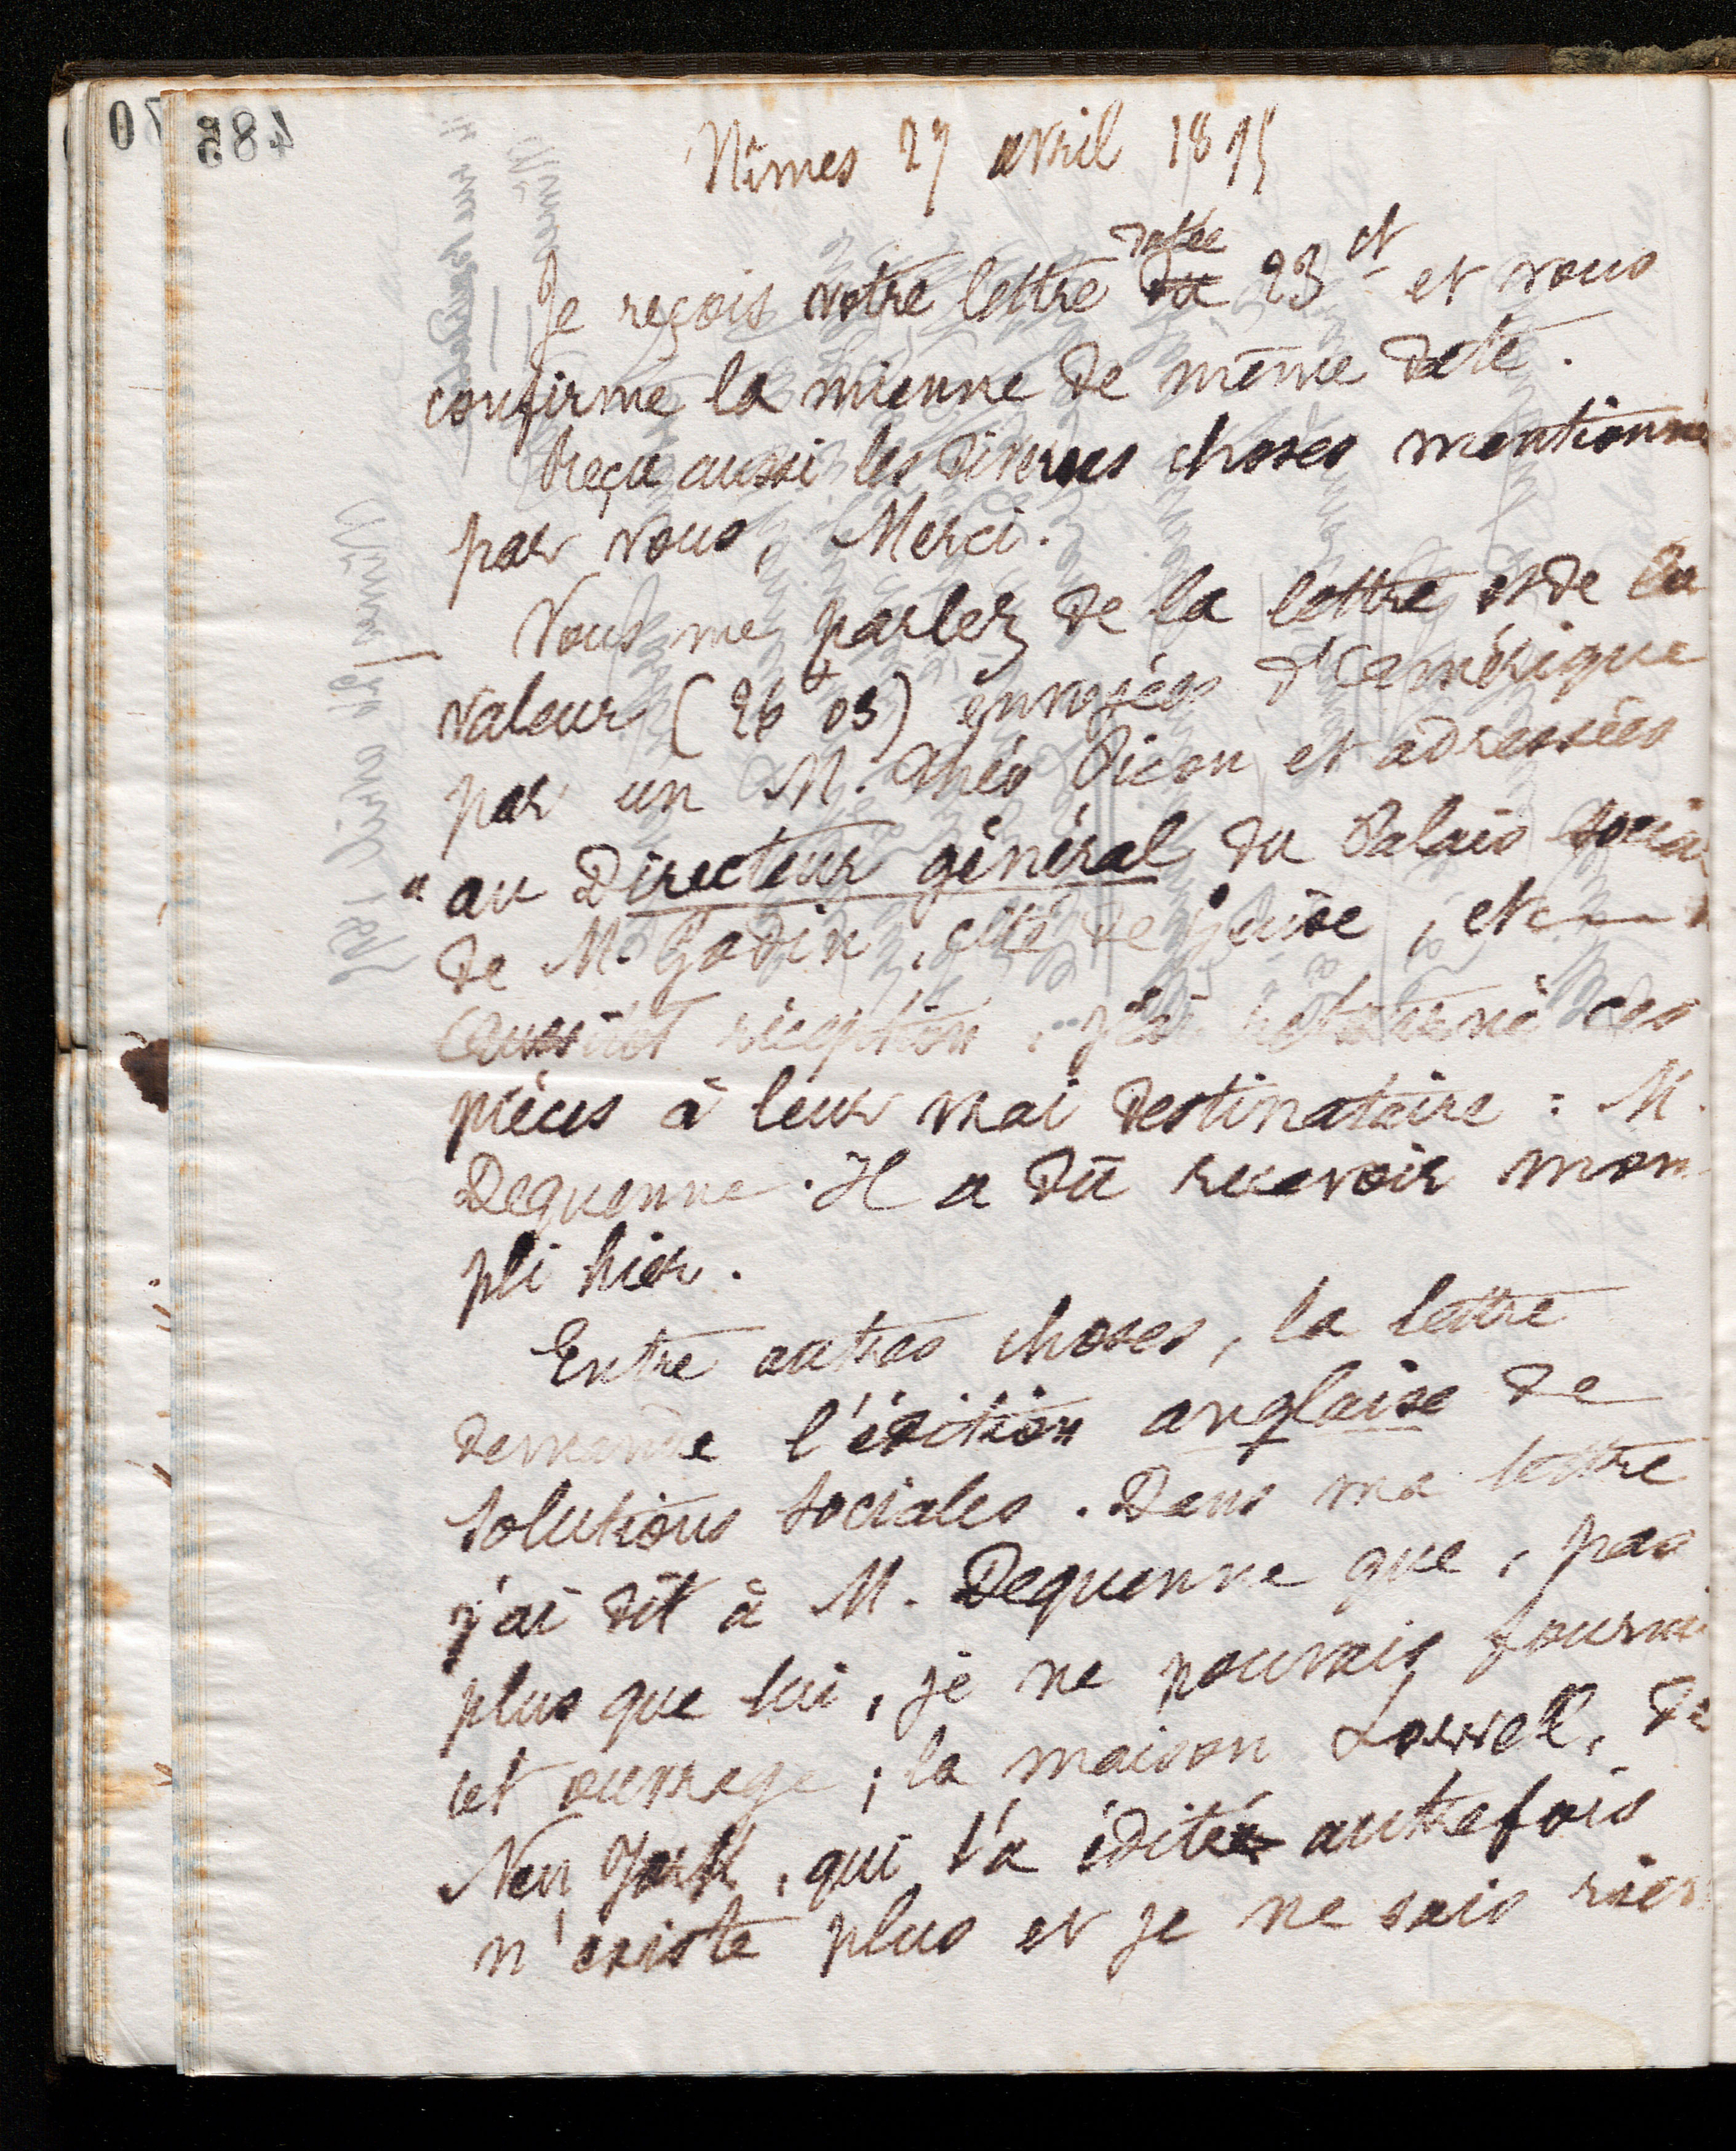 485
Nîmes 27 avril 1895
Je reçois votre lettre datée du 23 ct et vous
confirme la mienne de même date.
Reçu aussi les diverses choses mentionné
par vous, Merci.
Vous me parlez de la lettre et de la
valeur (26 f 05) envoyées d'Amérique
par un M. Théo Picon et adressées
"au Directeur général du Palais socia
de M. Godin, cité de guise, etc
Aussitôt réception, j'ai retourné ces
pièces à leur vrai destinataire : M.
Dequenne. Il a dû recevoir mon
pli hier.
Entre autres choses, la lettre
demande l'édition anglaise de
Solutions sociales. Dans ma lettre
j'ai dit à M. Dequenne que, pas
plus que lui, je ne pouvais fourni
cet ouvrage ; la maison Lowell, de
New York, qui l'a édité autrefois
n'existe plus et je ne sais rien